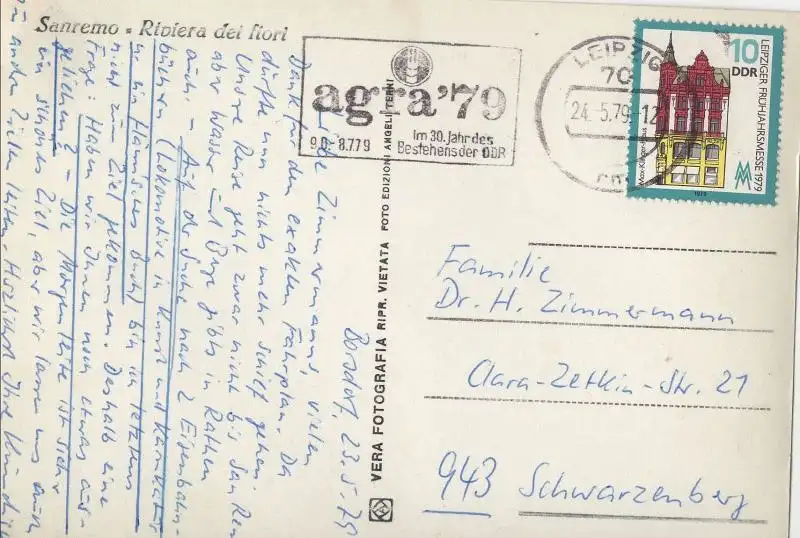 Sanremo - Riviera dei fiori
agra '79
9.6.-8.7.79
Im 30. Jahr des
Bestehens der DDR
LEIPZIG
70
24.-5.79.-12
10
DDR
LEIPZIGER FRÜHJAHRSMESSE 1979
Max-Klinger-Haus
1979
VERA FOTOGRAFIA RIPR. VIETATA FOTO EDIZIONI ANGELI TERNI
Borsdorf, 23.5.79
Liebe Zimmermanns, vielen
Dank für den exakten Fahrplan. Da
dürfte nun nichts mehr schief gehen.
Unsre Reise geht zwar nicht bis San Remo
aber Wasser und Berge gibts in Rathen
auch. – Auf der Suche nach 2 Eisenbahn-
büchern (Lokomotive in Kunst und Karikatur
u. ein Flämisches Buch) bin ich letztens
nicht zum Ziel gekommen. Deshalb eine
Frage: Haben wir Ihnen noch etwas aus-
geliehen? – Die Morgenleite ist sicher
ein schönes Ziel, aber wir lassen uns auch
zu andren Zielen leiten. Herzlichst Ihre
Familie
Dr. H. Zimmermann
Clara-Zetkin-Str. 21
943 Schwarzenberg